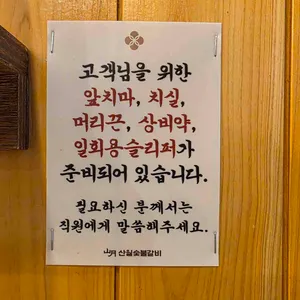 고객님을 위한
앞치마, 치실,
머리끈, 상비약,
일회용슬리퍼가
준비되어 있습니다.
필요하신 분께서는
직원에게 말씀해주세요.
산실숯불갈비